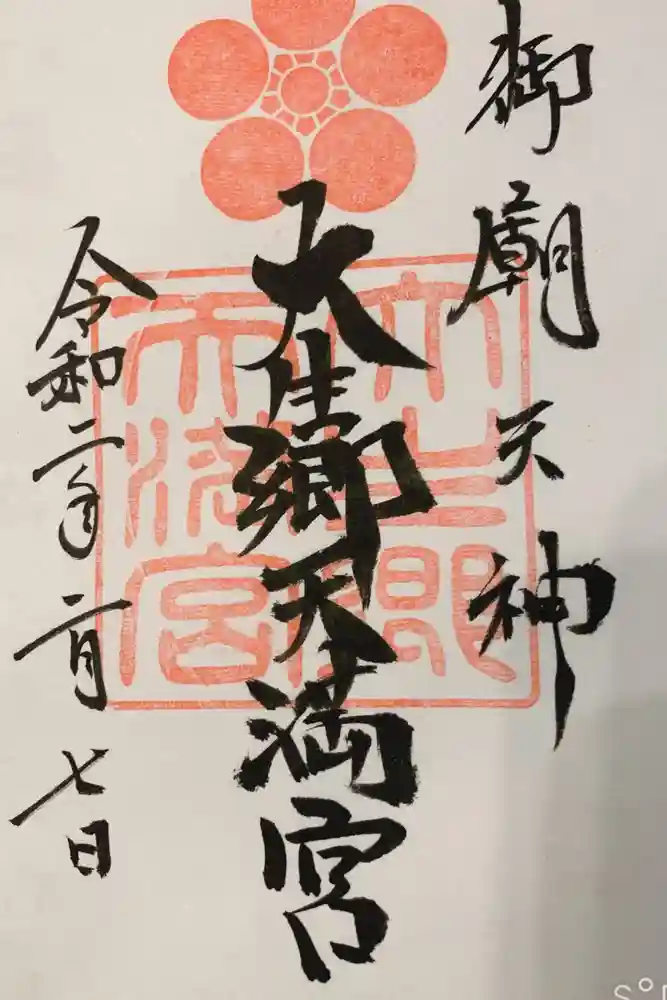 御廟天神
大生郷天満宮
令和二年二月七日
大生郷天満宮